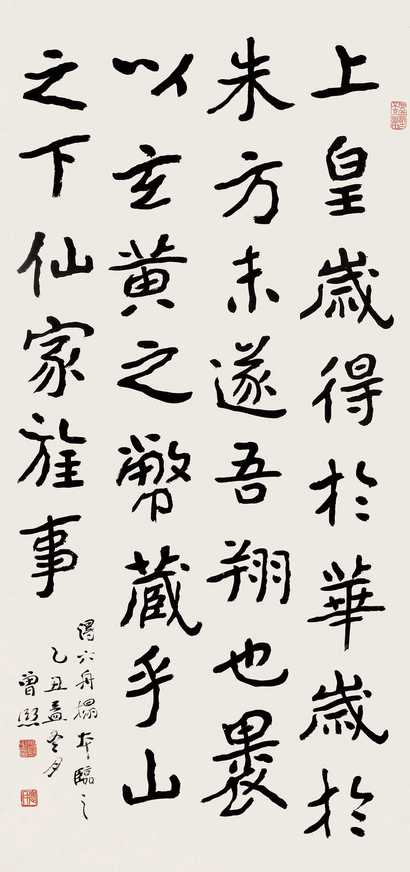 上皇歲得於華歲於
朱方未遂吾翔也裹
以玄黃之幣藏乎山
之下仙家旌事
得六舟搨本臨之
乙丑孟冬月
曾熙